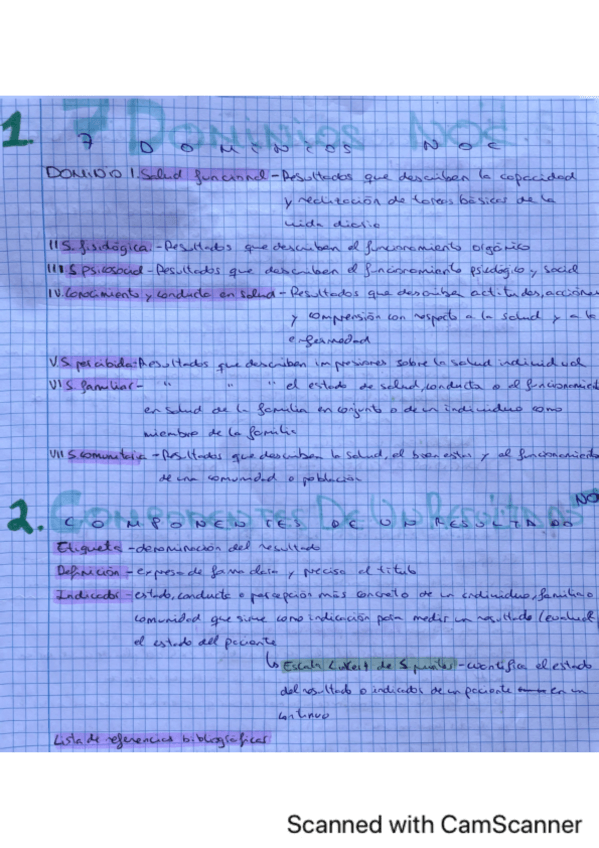 1. 7 DOMINIOS NOC
DOMINIO I. Salud funcional - Resultados que describen la capacidad
y realización de tareas básicas de la
vida diaria
II S. fisiológica - Resultados que describen el funcionamiento orgánico
III S psicosocial - Resultados que describen el funcionamiento psicológico y social
IV. Conocimiento y conducta en salud - Resultados que describen actitudes, accione
y comprensión con respecto a la salud y a la
enfermedad
V S. percibida - Resultados que describen impresiones sobre la salud individual
VI S. familiar - " " " el estado de salud, conducta o el funcionamient
en salud de la familia en conjunto o de un individuo como
miembro de la familia
VII S comunitaria - Resultados que describen la salud, el bienestar y el funcionamiento
de una comunidad o población
2. COMPONENTES DE UN RESULTADO NO
Etiqueta - denominación del resultado
Definición - expresa de forma clara y precisa el título
Indicador - estado, conducta o percepción más concreto de un individuo, familia o
comunidad que sirve como indicación para medir un resultado (evaluar
el estado del paciente
↳ Escala Likert de 5 puntos - cuantifica el estado
del resultado o indicador de un paciente en un
continuo
Lista de referencias bibliográficas
Scanned with CamScanner